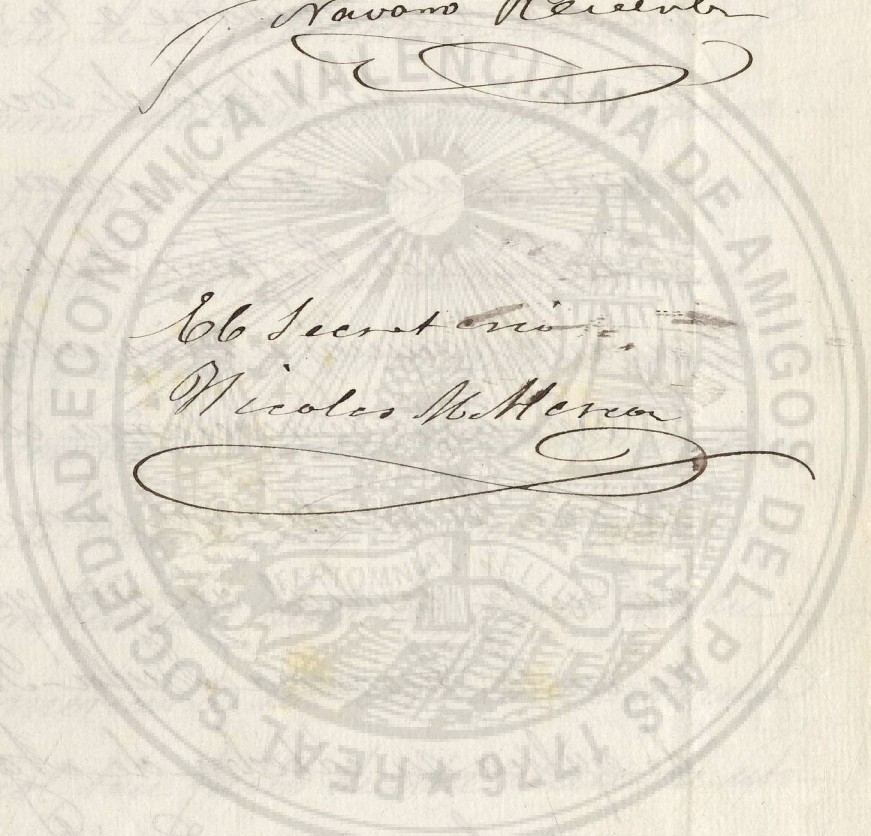 Navarro Reverter
El Secretario
Nicolas M.
REAL SOCIEDAD ECONOMICA VALENCIANA DE AMIGOS DEL PAIS 1776
FERT OMNIA TELLUS